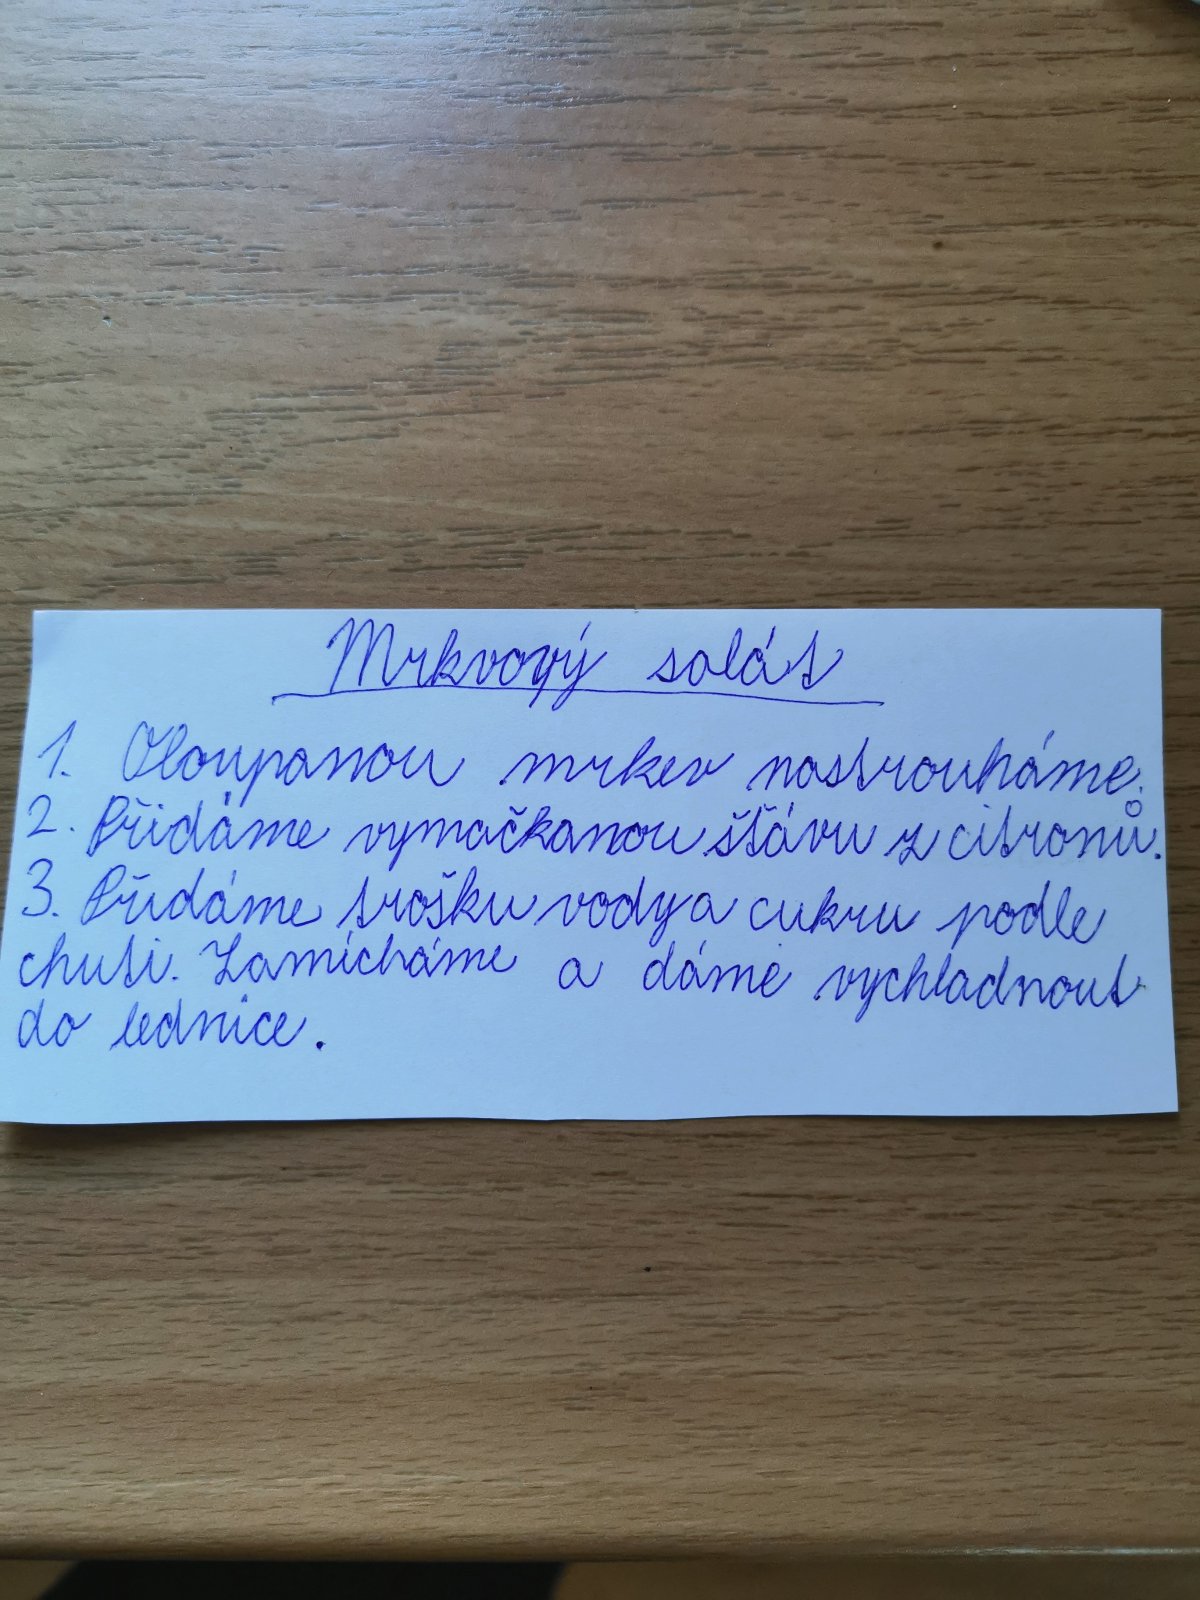 Mrkvový salát
1. Oloupanou mrkev nastrouháme.
2. Přidáme vymačkanou šťávu z citronů.
3. Přidáme trošku vody a cukru podle
chuti. Zamícháme a dáme vychladnout
do lednice.